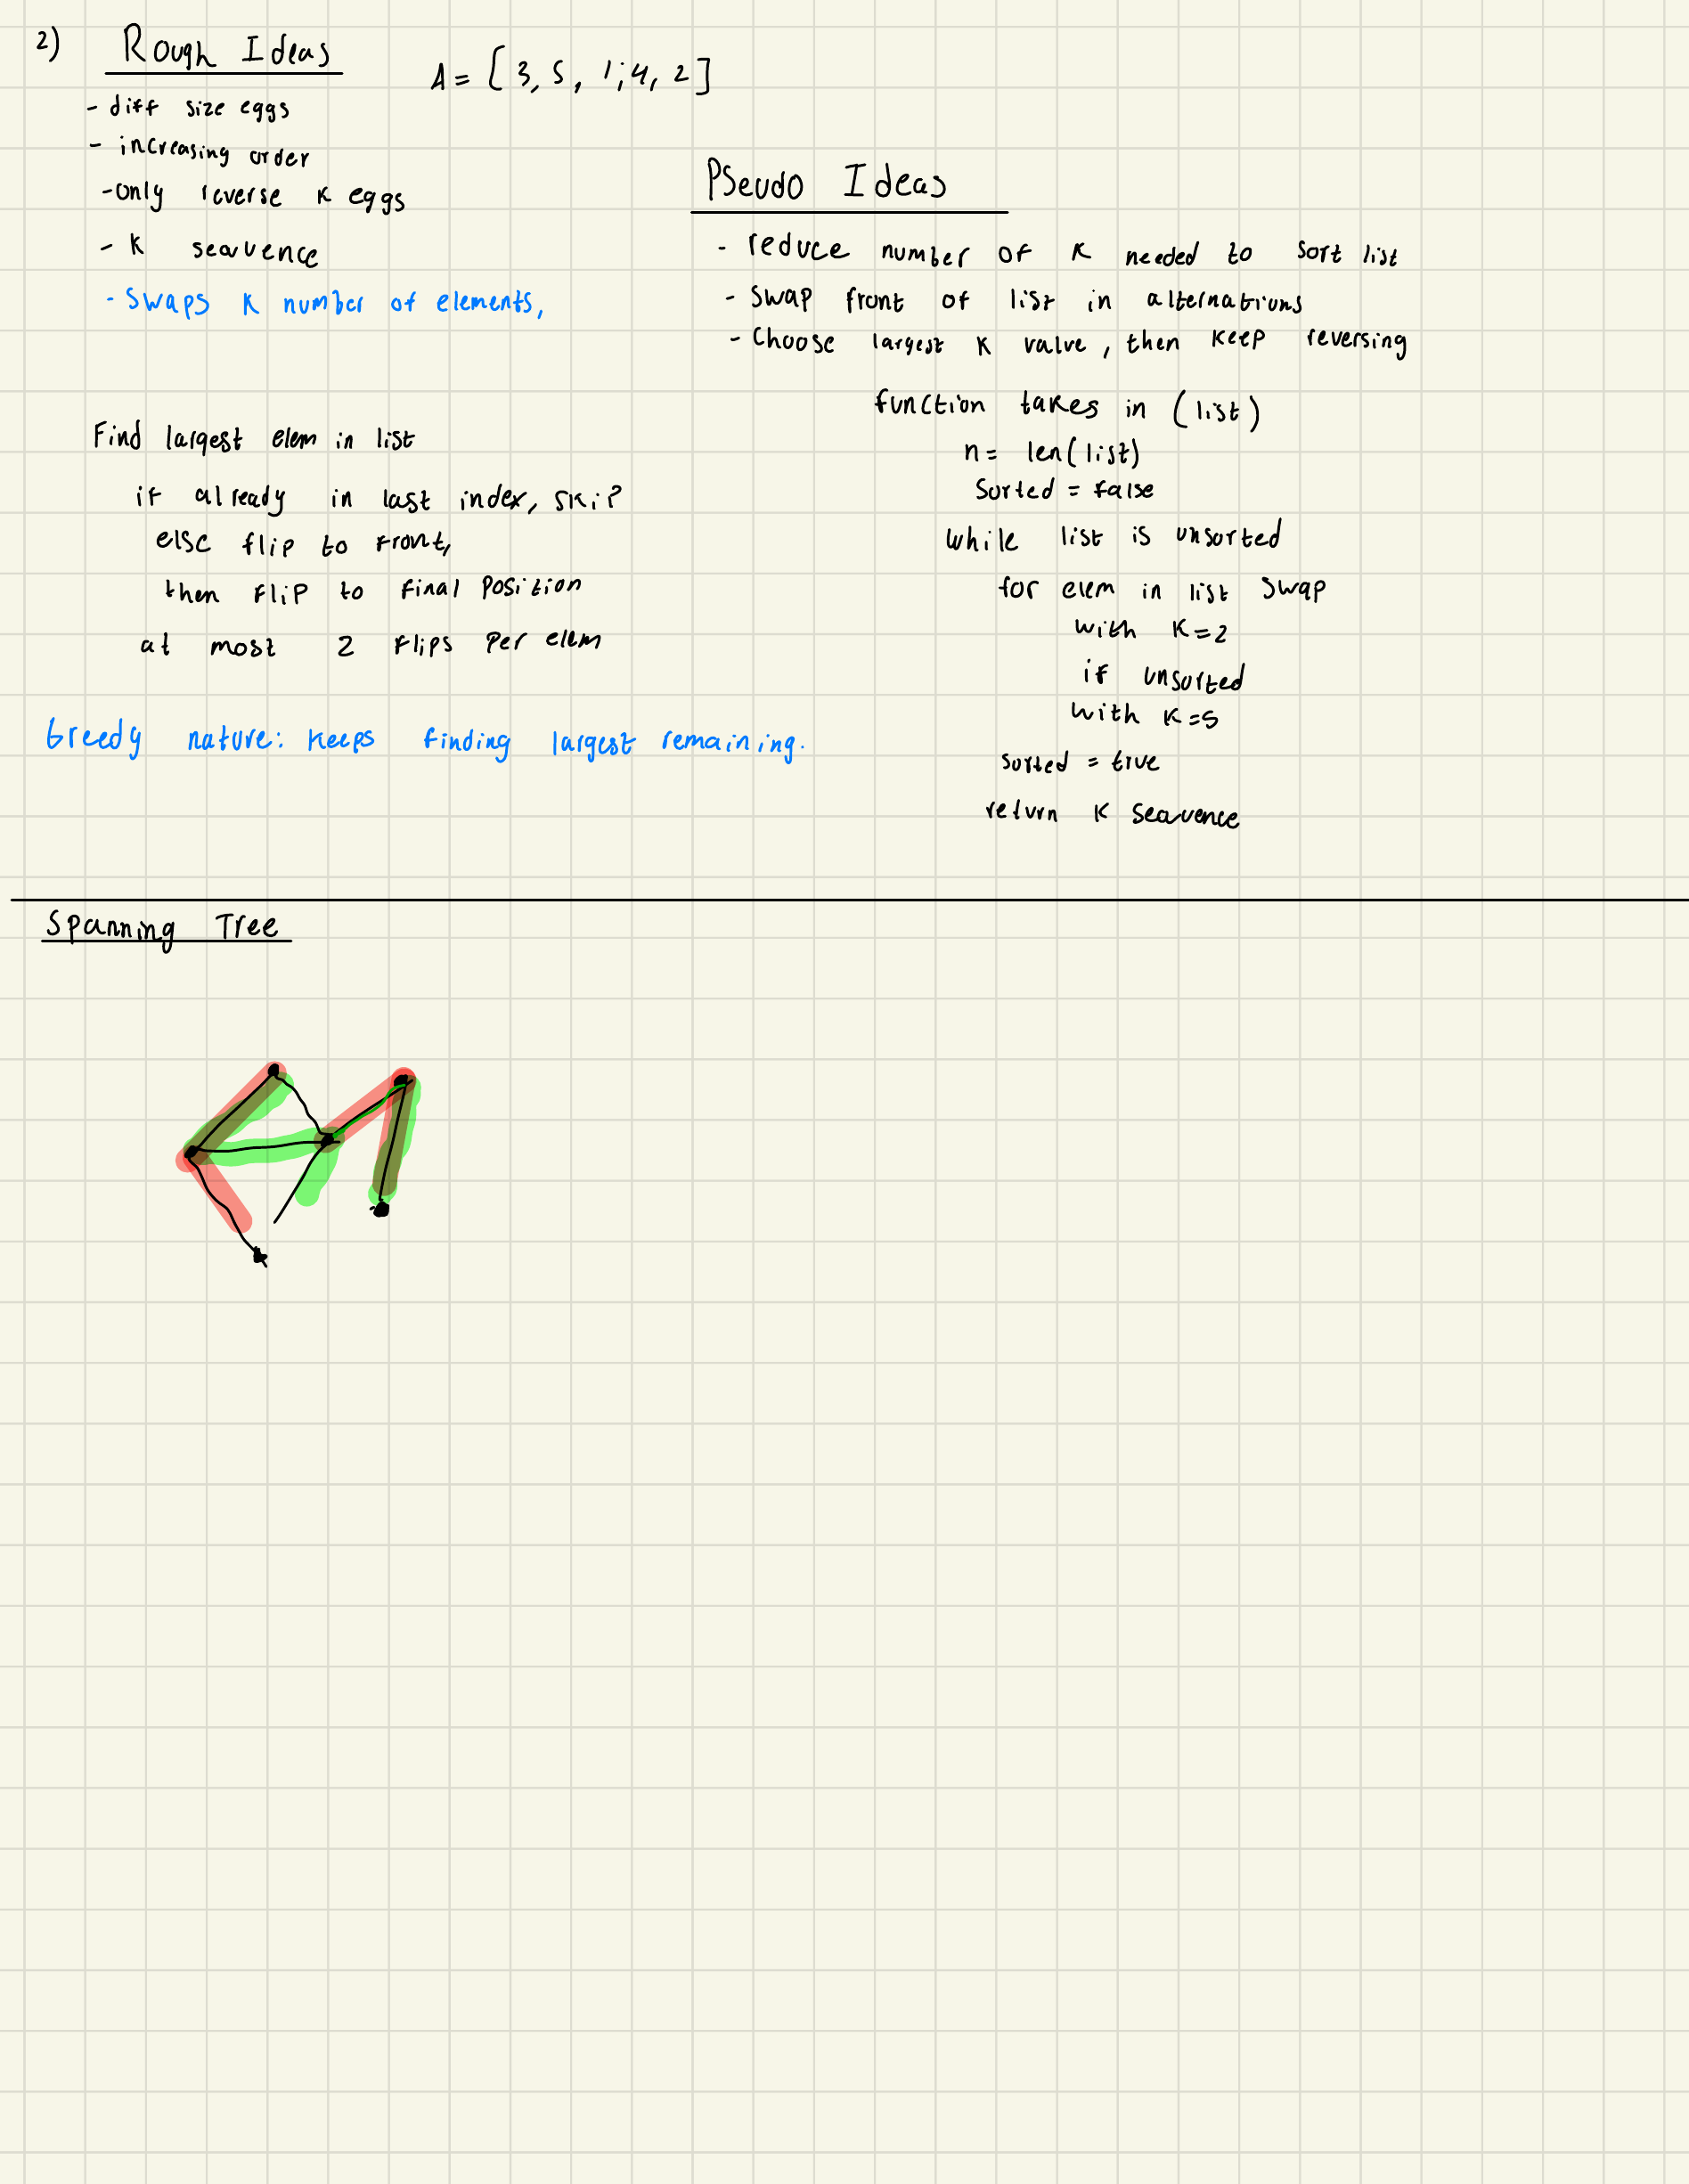 2)
Rough Ideas
A = [3, 5, 1, 4, 2]
- diff size eggs
- increasing order
- only reverse K eggs
- K sequence
- Swaps K number of elements,
Find largest elem in list
if already in last index, skip
else flip to front,
then flip to final position
at most 2 flips per elem
Greedy nature: keeps finding largest remaining.
Pseudo Ideas
- reduce number of K needed to sort list
- Swap front of list in alternations
- Choose largest K value, then keep reversing
function takes in (list)
n = len(list)
Sorted = false
while list is unsorted
for elem in list swap
with K=2
if unsorted
with K=5
sorted = true
return K sequence
Spanning Tree